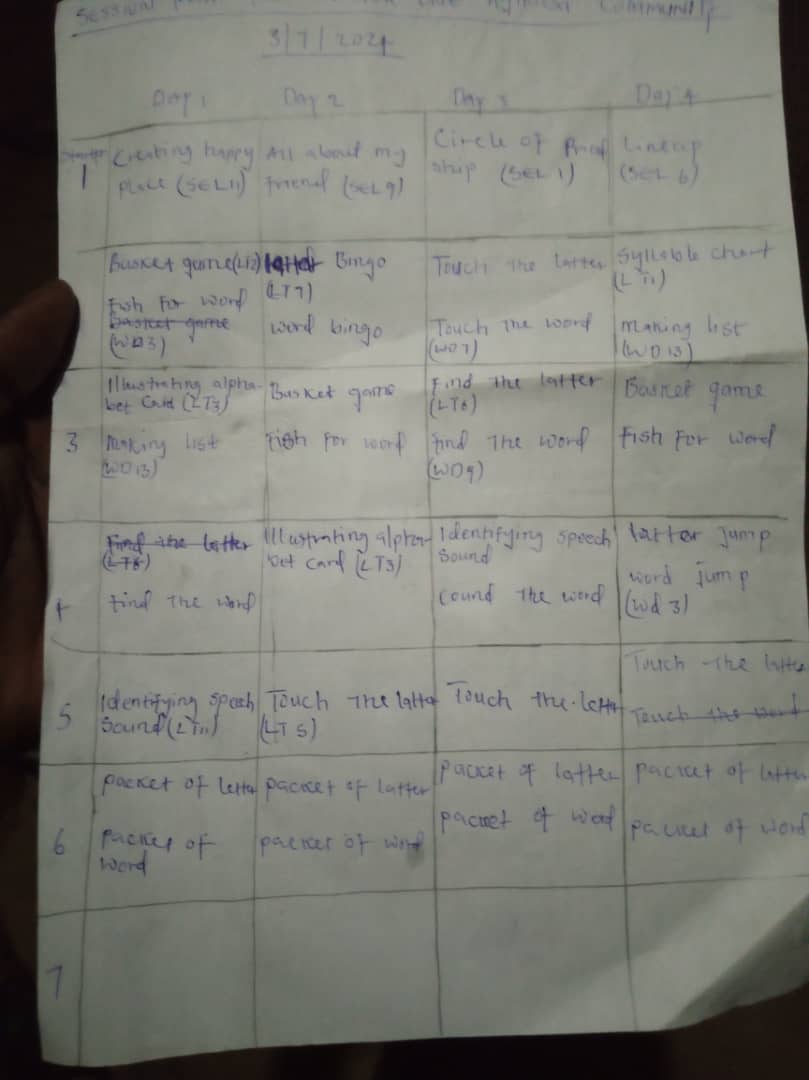 Session
Community
3/7/2024
Day 1 Day 2 Day 3 Day 4
Starter
1
Creating happy
place (SEL11)
All about my
friend (SEL9)
Circle of
ship (SEL 1)
Lineup
(SEL 6)
Basket game (LT2)
Fish for word
Basket game
(WD3)
Bingo
(LT7)
word bingo
Touch the latter
Touch the word
(WD7)
Syllable chart
(LT11)
making list
(WD13)
3
Illustrating alpha-
bet Card (LT3)
Making list
(WD13)
Basket game
Fish for word
Find the latter
(LT6)
find the word
(WD9)
Basket game
Fish For word
4
Find the latter
(LT6)
find the word
Illustrating alpha-
bet card (LT3)
Identifying speech
Sound
Cound the word
latter jump
word jump
(Wd 3)
5
Identifying speech
Sound (LT11)
Touch the latter
(LT5)
Touch the letter
Touch the latter
Touch the word
6
packet of letter
packet of
word
packet of latter
packet of word
packet of latter
packet of word
packet of latter
packet of word
7